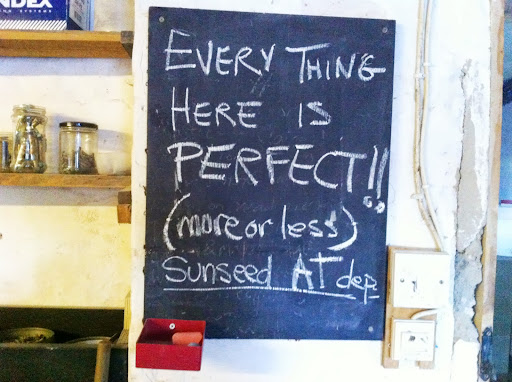 NDEX
EVERY THING
HERE IS
PERFECT!!
(more or less)
SUNSEED AT dep.